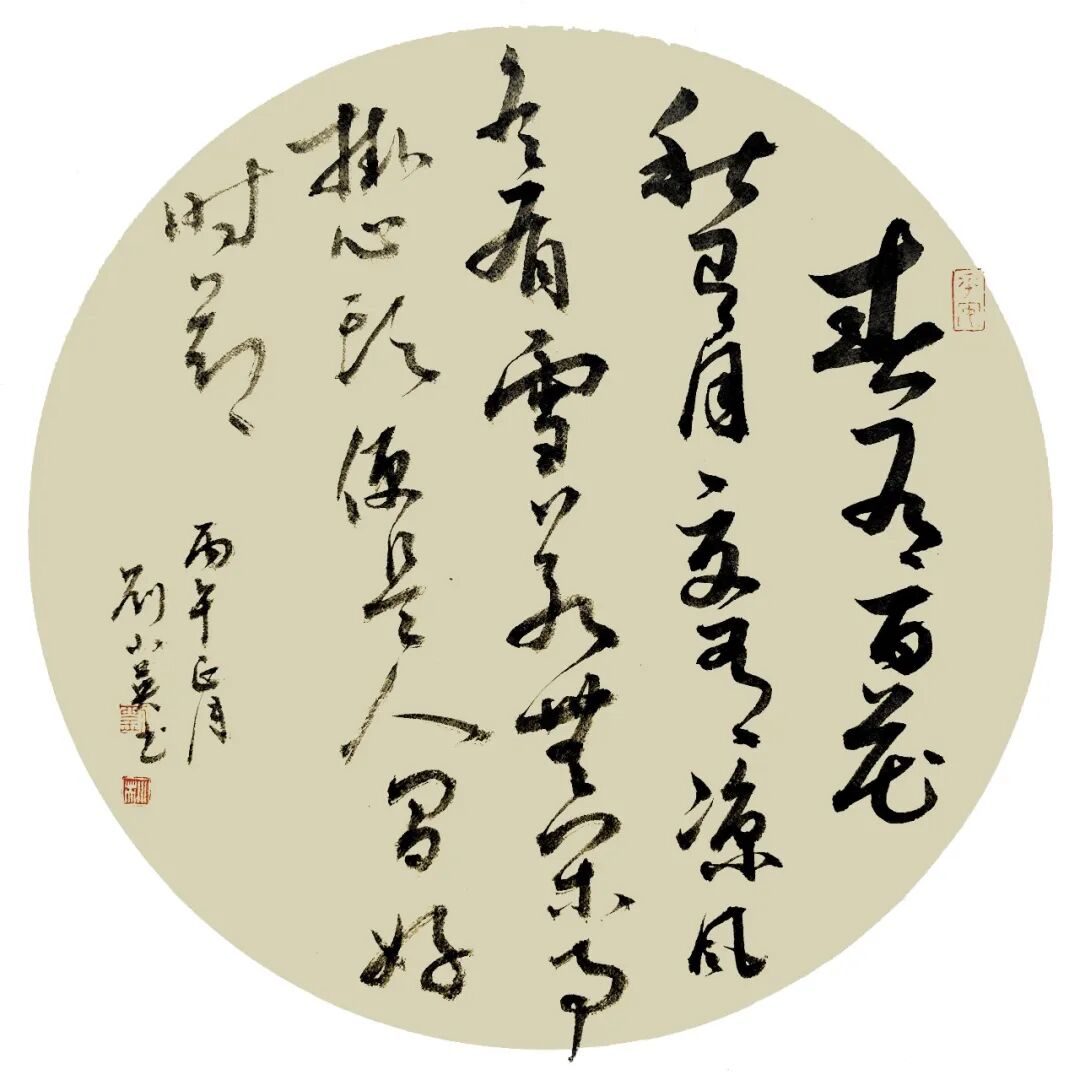 春有百花
秋有月夏有凉风
冬有雪若無闲事
掛心头便是人间好
时节
丙午正月
刘小英书